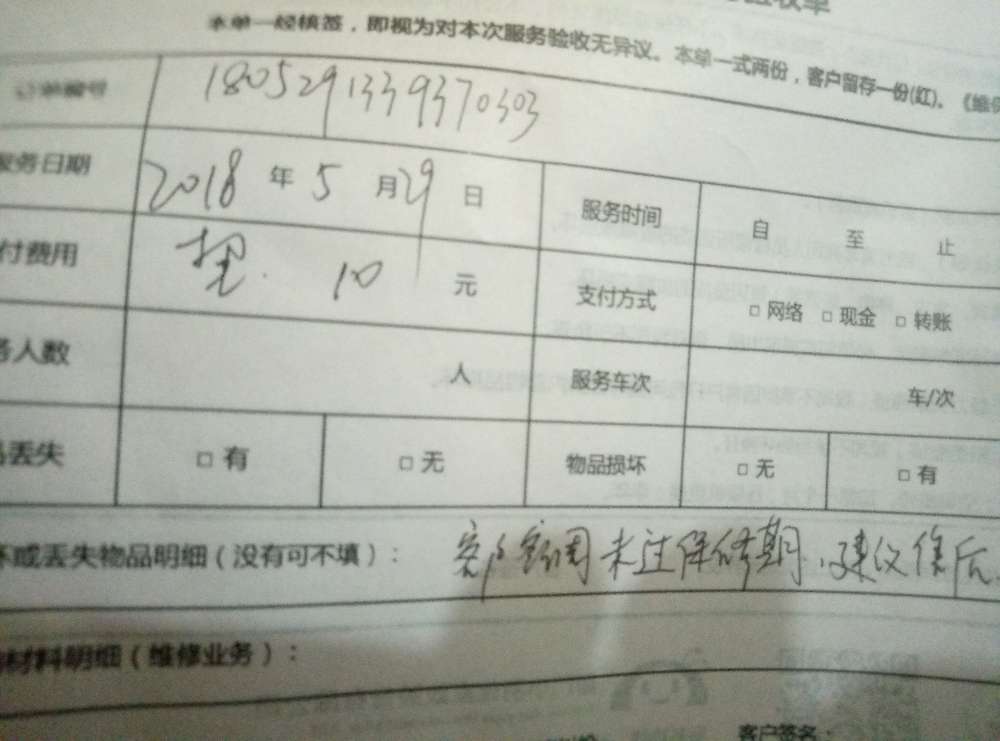 验收单
本单一经核签，即视为对本次服务验收无异议。本单一式两份，客户留存一份(红)。《维
1805291339370303
服务日期 2018 年 5 月 29 日 服务时间 自 至 止
付费用 10 元 支付方式 □ 网络 □ 现金 □ 转账
务人数 人 服务车次 车/次
品丢失 □ 有 □ 无 物品损坏 □ 无 □ 有
坏或丢失物品明细（没有可不填）： 客户空调未过保修期，建议售后
材料明细（维修业务）：
客户签名：